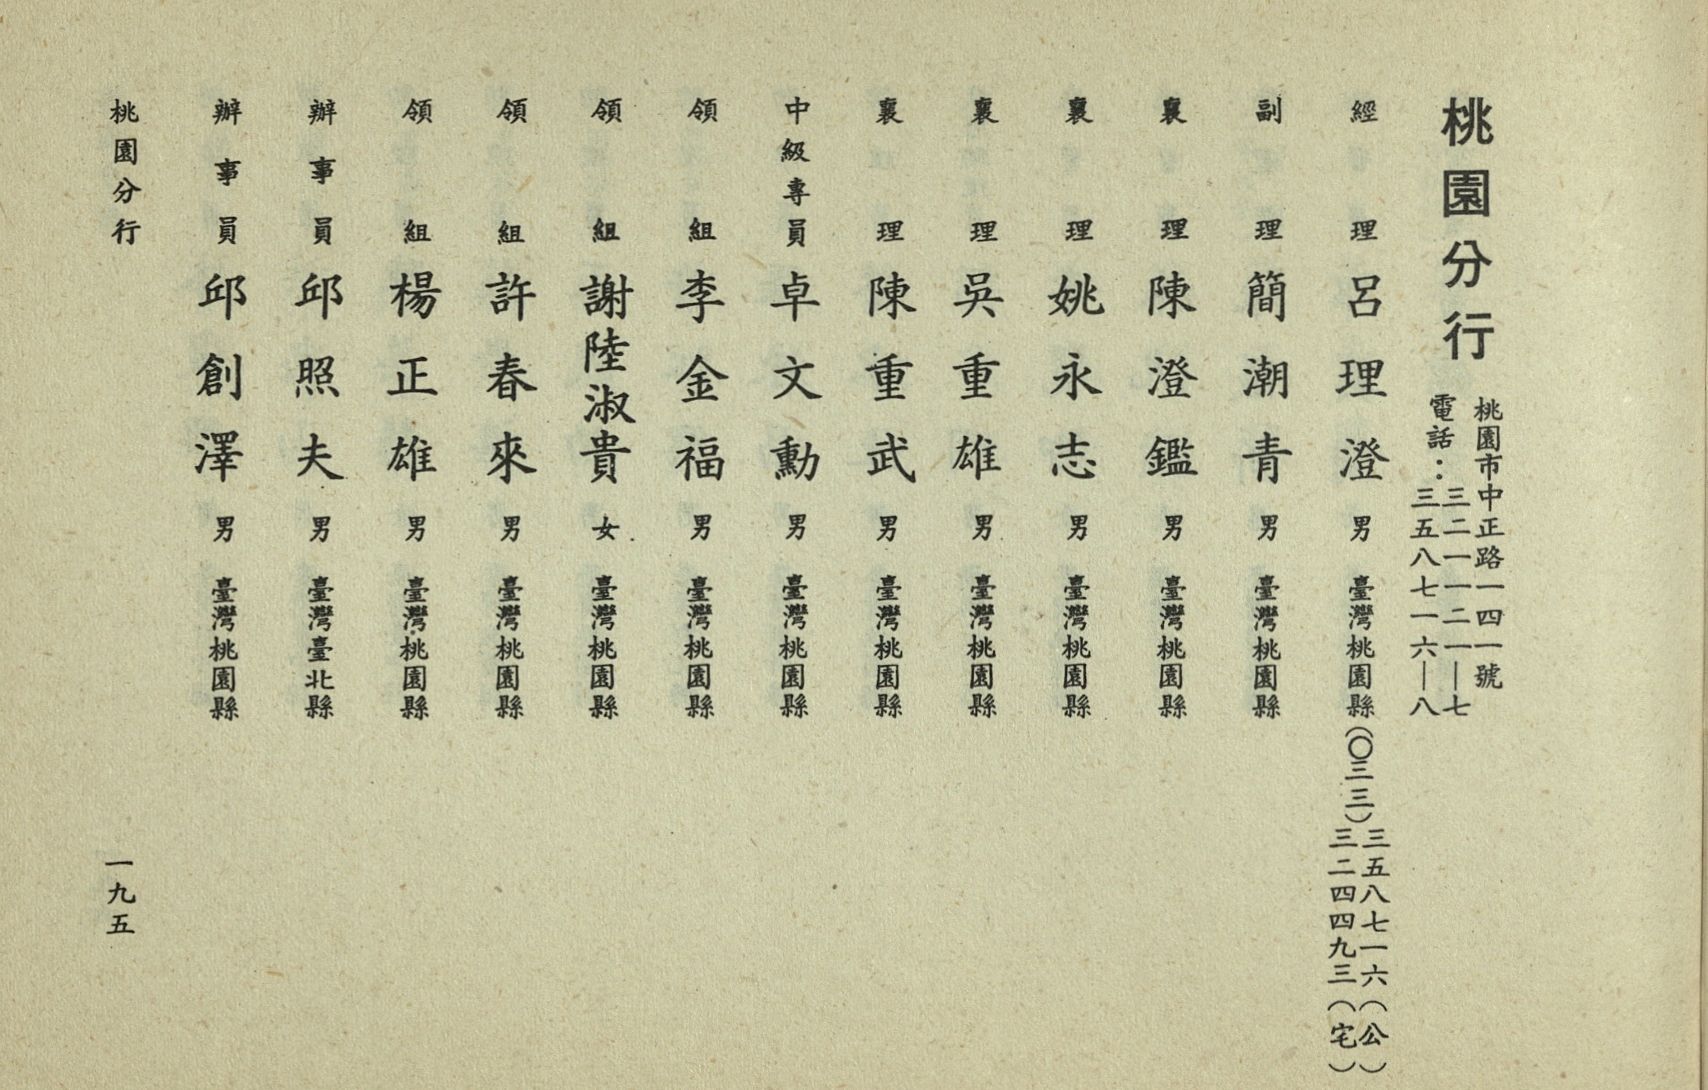 桃園分行
桃園市中正路一四一號
電話：三二一一二一—七
三五八七一六—八
經理 呂理澄 男 臺灣桃園縣（〇三三）三五八七一六（公）
三二四四九三（宅）
副理 簡潮青 男 臺灣桃園縣
襄理 陳澄鑑 男 臺灣桃園縣
襄理 姚永志 男 臺灣桃園縣
襄理 吳重雄 男 臺灣桃園縣
襄理 陳重武 男 臺灣桃園縣
中級專員 卓文勳 男 臺灣桃園縣
領組 李金福 男 臺灣桃園縣
領組 謝陸淑貴 女 臺灣桃園縣
領組 許春來 男 臺灣桃園縣
領組 楊正雄 男 臺灣桃園縣
辦事員 邱照夫 男 臺灣臺北縣
辦事員 邱創澤 男 臺灣桃園縣
桃園分行
一九五